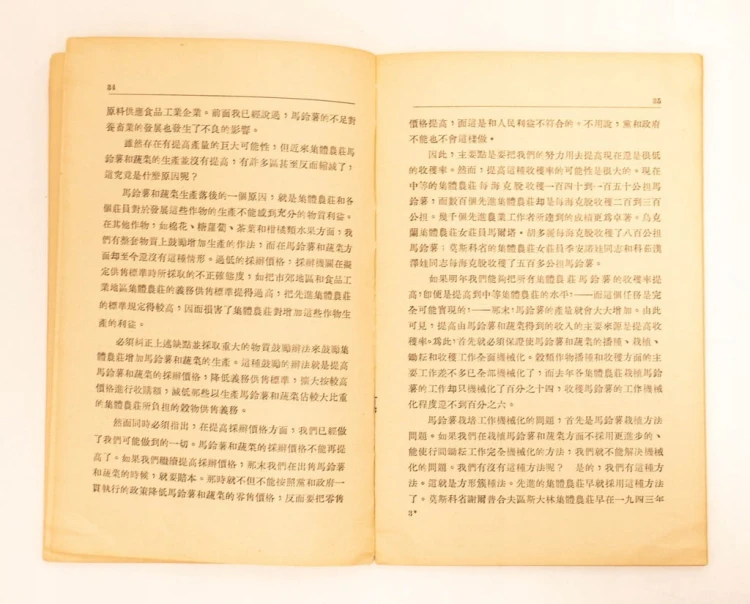 34
原料供應食品工業企業。前面我已經說過，馬鈴薯的不足對
畜業的發展也發生了不良的影響。
雖然存在有提高產量的巨大可能性，但近來集體農莊馬
鈴薯和蔬菜的生產並沒有提高，有許多區甚至反而縮減了，
這究竟是什麼原因呢？
馬鈴薯和蔬菜生產落後的一個原因，就是集體農莊和各
個莊員對於發展這些作物的生產不能感到充分的物質利益。
在其他作物，如棉花、糖蘿蔔、茶葉和柑橘類水果方面，我
們有整套物質上鼓勵增加生產的作法，而在馬鈴薯和蔬菜方
面却至今還沒有這種情形。過低的採辦價格，採辦機關在擬
定供售標準時所採取的不正確態度，如把市郊地區和食品工
業地區集體農莊的義務供售標準提得過高，把先進集體農莊
的標準規定得較高，因而損害了集體農莊對增加這些作物生
產的利益。
必須糾正上述缺點並採取重大的物質鼓勵辦法來鼓勵集
體農莊增加馬鈴薯和蔬菜的生產。這種鼓勵的辦法就是提高
馬鈴薯和蔬菜的採辦價格，降低義務供售標準，擴大按較高
價格進行收購額，減低那些以生產馬鈴薯和蔬菜佔較大比重
的集體農莊所負担的穀物供售義務。
然而同時必須指出，在提高採辦價格方面，我們已經做
了我們可能做到的一切。馬鈴薯和蔬菜的採辦價格不能再提
高了。如果我們繼續提高採辦價格，那末我們在出售馬鈴薯
和蔬菜的時候，就要賠本。那時就不但不能按照黨和政府一
貫執行的政策降低馬鈴薯和蔬菜的零售價格，反而要把零售
35
價格提高，而這是和人民利益不符合的。不用說，黨和政府
不能也不會這樣做。
因此，主要點是要把我們的努力用去提高現在還是很低
的收穫率。然而，提高這種收穫率的可能性是很大的。現在
中等的集體農莊每海克脫收穫一百四十到一百五十公担馬
鈴薯，而數百個先進集體農莊却是每海克脫收穫二百到三百
公担。幾千個先進農業工作者所達到的成績更爲卓著。烏克
蘭集體農莊女莊員馬爾塔·胡多遲每海克脫收穫了八百公担
馬鈴薯；莫斯科省的集體農莊女莊員季安諾娃同志和科茲漢
澤娃同志每海克脫收穫了五百多公担馬鈴薯。
如果明年我們能夠把所有集體農莊馬鈴薯的收穫率提
高，卽便是提高到中等集體農莊的水平，——而這個任務是完
全可能實現的，——那末，馬鈴薯的產量就會大大增加。由此
可見，提高由馬鈴薯和蔬菜得到的收入的主要來源是提高收
穫率。爲此，首先就必須保證使馬鈴薯和蔬菜的播種、栽植、
鋤耘和收穫工作全面機械化。穀類作物播種和收穫方面的主
要工作差不多已全部機械化了，而去年各集體農莊栽植馬鈴
薯的工作却只機械化了百分之十四，收穫馬鈴薯的工作機械
化程度還不到百分之六。
馬鈴薯栽培工作機械化的問題，首先是馬鈴薯栽植方法
問題。如果我們在栽植馬鈴薯和蔬菜方面不採用更進步的、
能使行間鋤耘工作完全機械化的方法，我們就不能解決機械
化的問題。我們有沒有這種方法呢？ 是的，我們有這種方
法。這就是方形簇種法。先進的集體農莊早就採用這種方法
了。莫斯科省謝爾普合夫區斯大林集體農莊早在一九四三年
3*